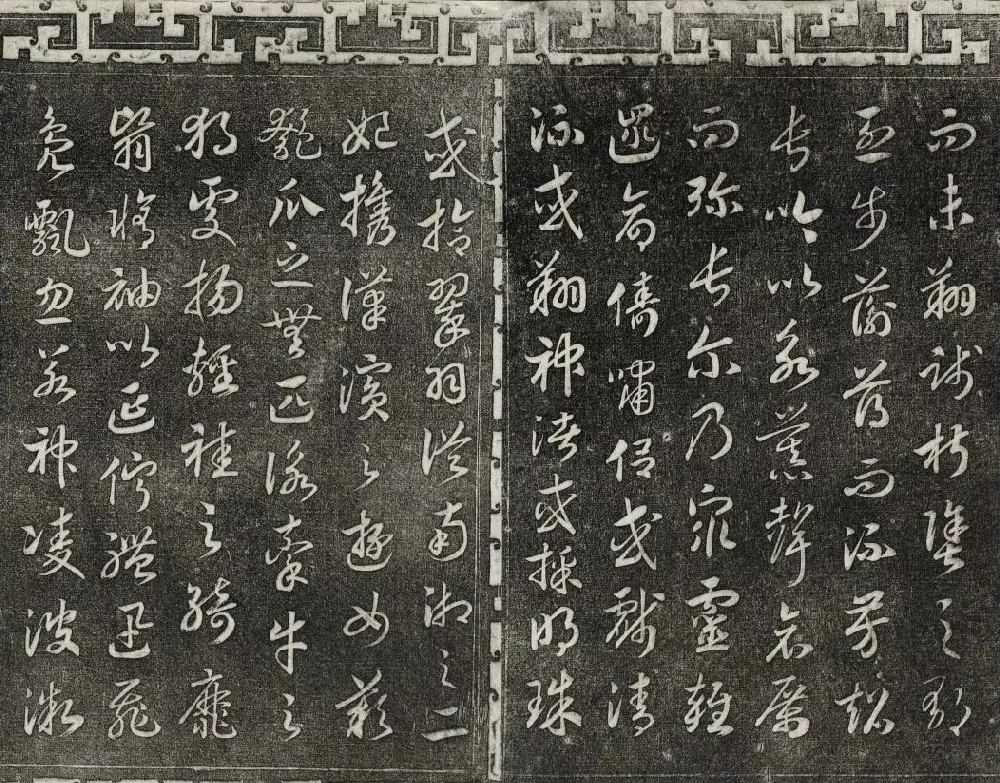 而未翔踐椒塗之郁
烈步蘅薄而流芳超
長吟以永慕聲哀厲
而弥長尔乃眾靈雜
遝命儔嘯侶或戲清
流或翔神渚或採明珠
或拾翠羽從南湘之二
妃攜漢濱之遊女歎
匏瓜之無匹詠牽牛之
獨處揚輕袿之綺靡
翳脩袖以延佇體迅飛
鳧飄忽若神凌波微